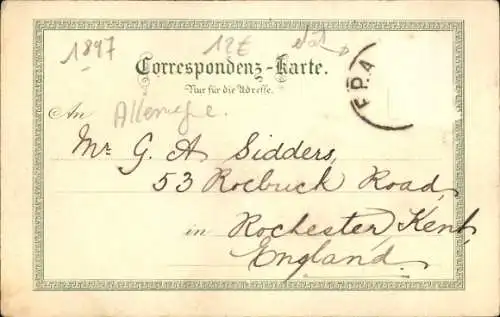 1897 12£ état
Correspondenz-Karte.
Nur für die Adresse.
F.P.A
Allemagne.
An
Mr G. A Sidders,
53 Roebuck Road,
in Rochester, Kent,
England.